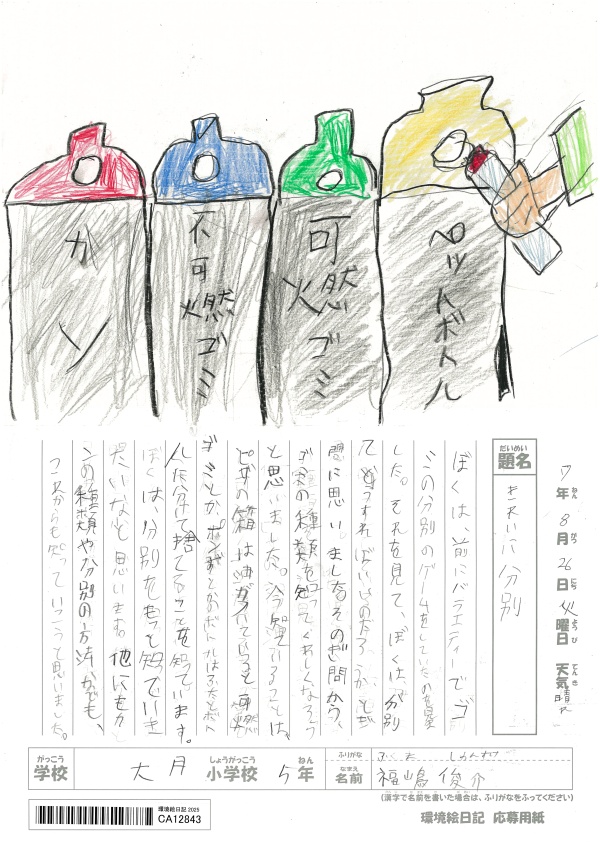 カン
不可燃ゴミ
可燃ゴミ
ペットボトル
7年8月26日火曜日 天気 晴れ
ねん がつ にち ようび てんき
だいめい
題名
きれいに分別
ぼくは、前にバラエティーでゴ
ミの分別のゲームをしていたのを見
ました。それを見て、ぼくは、分別
って どうすればいいのだろうか、とぎ
問に思いました。そのぎ問から、
ゴミの種類を知ってくわしくなろう
と思いました。今知っていることは、
ピザの箱は油がついているから可燃
ゴミとか、ペットボトルは
分けて捨てることを知っています。
ぼくは、分別をもっと知っていき
たいなと思います。他にもカ
ンの種類や分別の方法がでも、
これからも知っていこうと思いました。
がっこう
学校
大月
しょうがっこう
小学校
5年
ねん
ふりがな
なまえ
名前
福嶋俊介
(漢字で名前を書いた場合は、ふりがなをふってください)
環境絵日記 2025
CA12843
環境絵日記 応募用紙